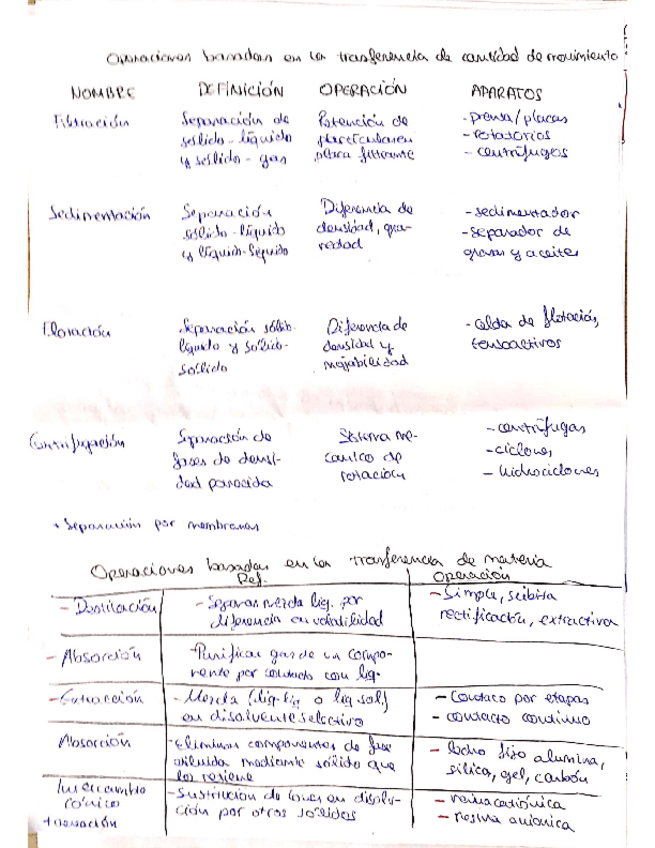 Operaciones basadas en la trasferencia de cantidad de movimiento
NOMBRE DEFINICIÓN OPERACIÓN APARATOS
Filtración Separación de Retención de - prensa/placas
sólido-líquido partículas en - rotatorios
y sólido-gas placa filtrante - centrífugos
Sedimentación Separación Diferencia de - sedimentador
sólido-líquido densidad, gra- - separador de
y líquido-líquido vedad grasas y aceites
Flotación Separación sólido- Diferencia de - celda de flotación,
líquido y sólido- densidad y tensoactivos
sólido mojabilidad
Centrifugación Separación de Sistema me- - centrífugas
fases de densi- cánico de - ciclones
dad parecida rotación - hidrociclones
+ Separación por membranas
Operaciones basadas en la trasferencia de materia
Def. Operación
- Destilación - Separar mezcla liq. por - Simple, súbita
diferencia en volatilidad rectificación, extractiva
- Absorción - Purificar gas de un compo-
nente por contacto con liq.
- Extracción - Mezcla (liq-liq o liq sol.) - Contaco por etapas
en disolvente selectivo - contacto continuo
Absorción - Eliminar componentes de fase - lecho fijo alumina,
diluida mediante sólido que sílica, gel, carbón
los retiene
Intercambio - Sustitución de iones en disolu- - resina catiónica
iónico ción por otros sólidos - resina aniónica